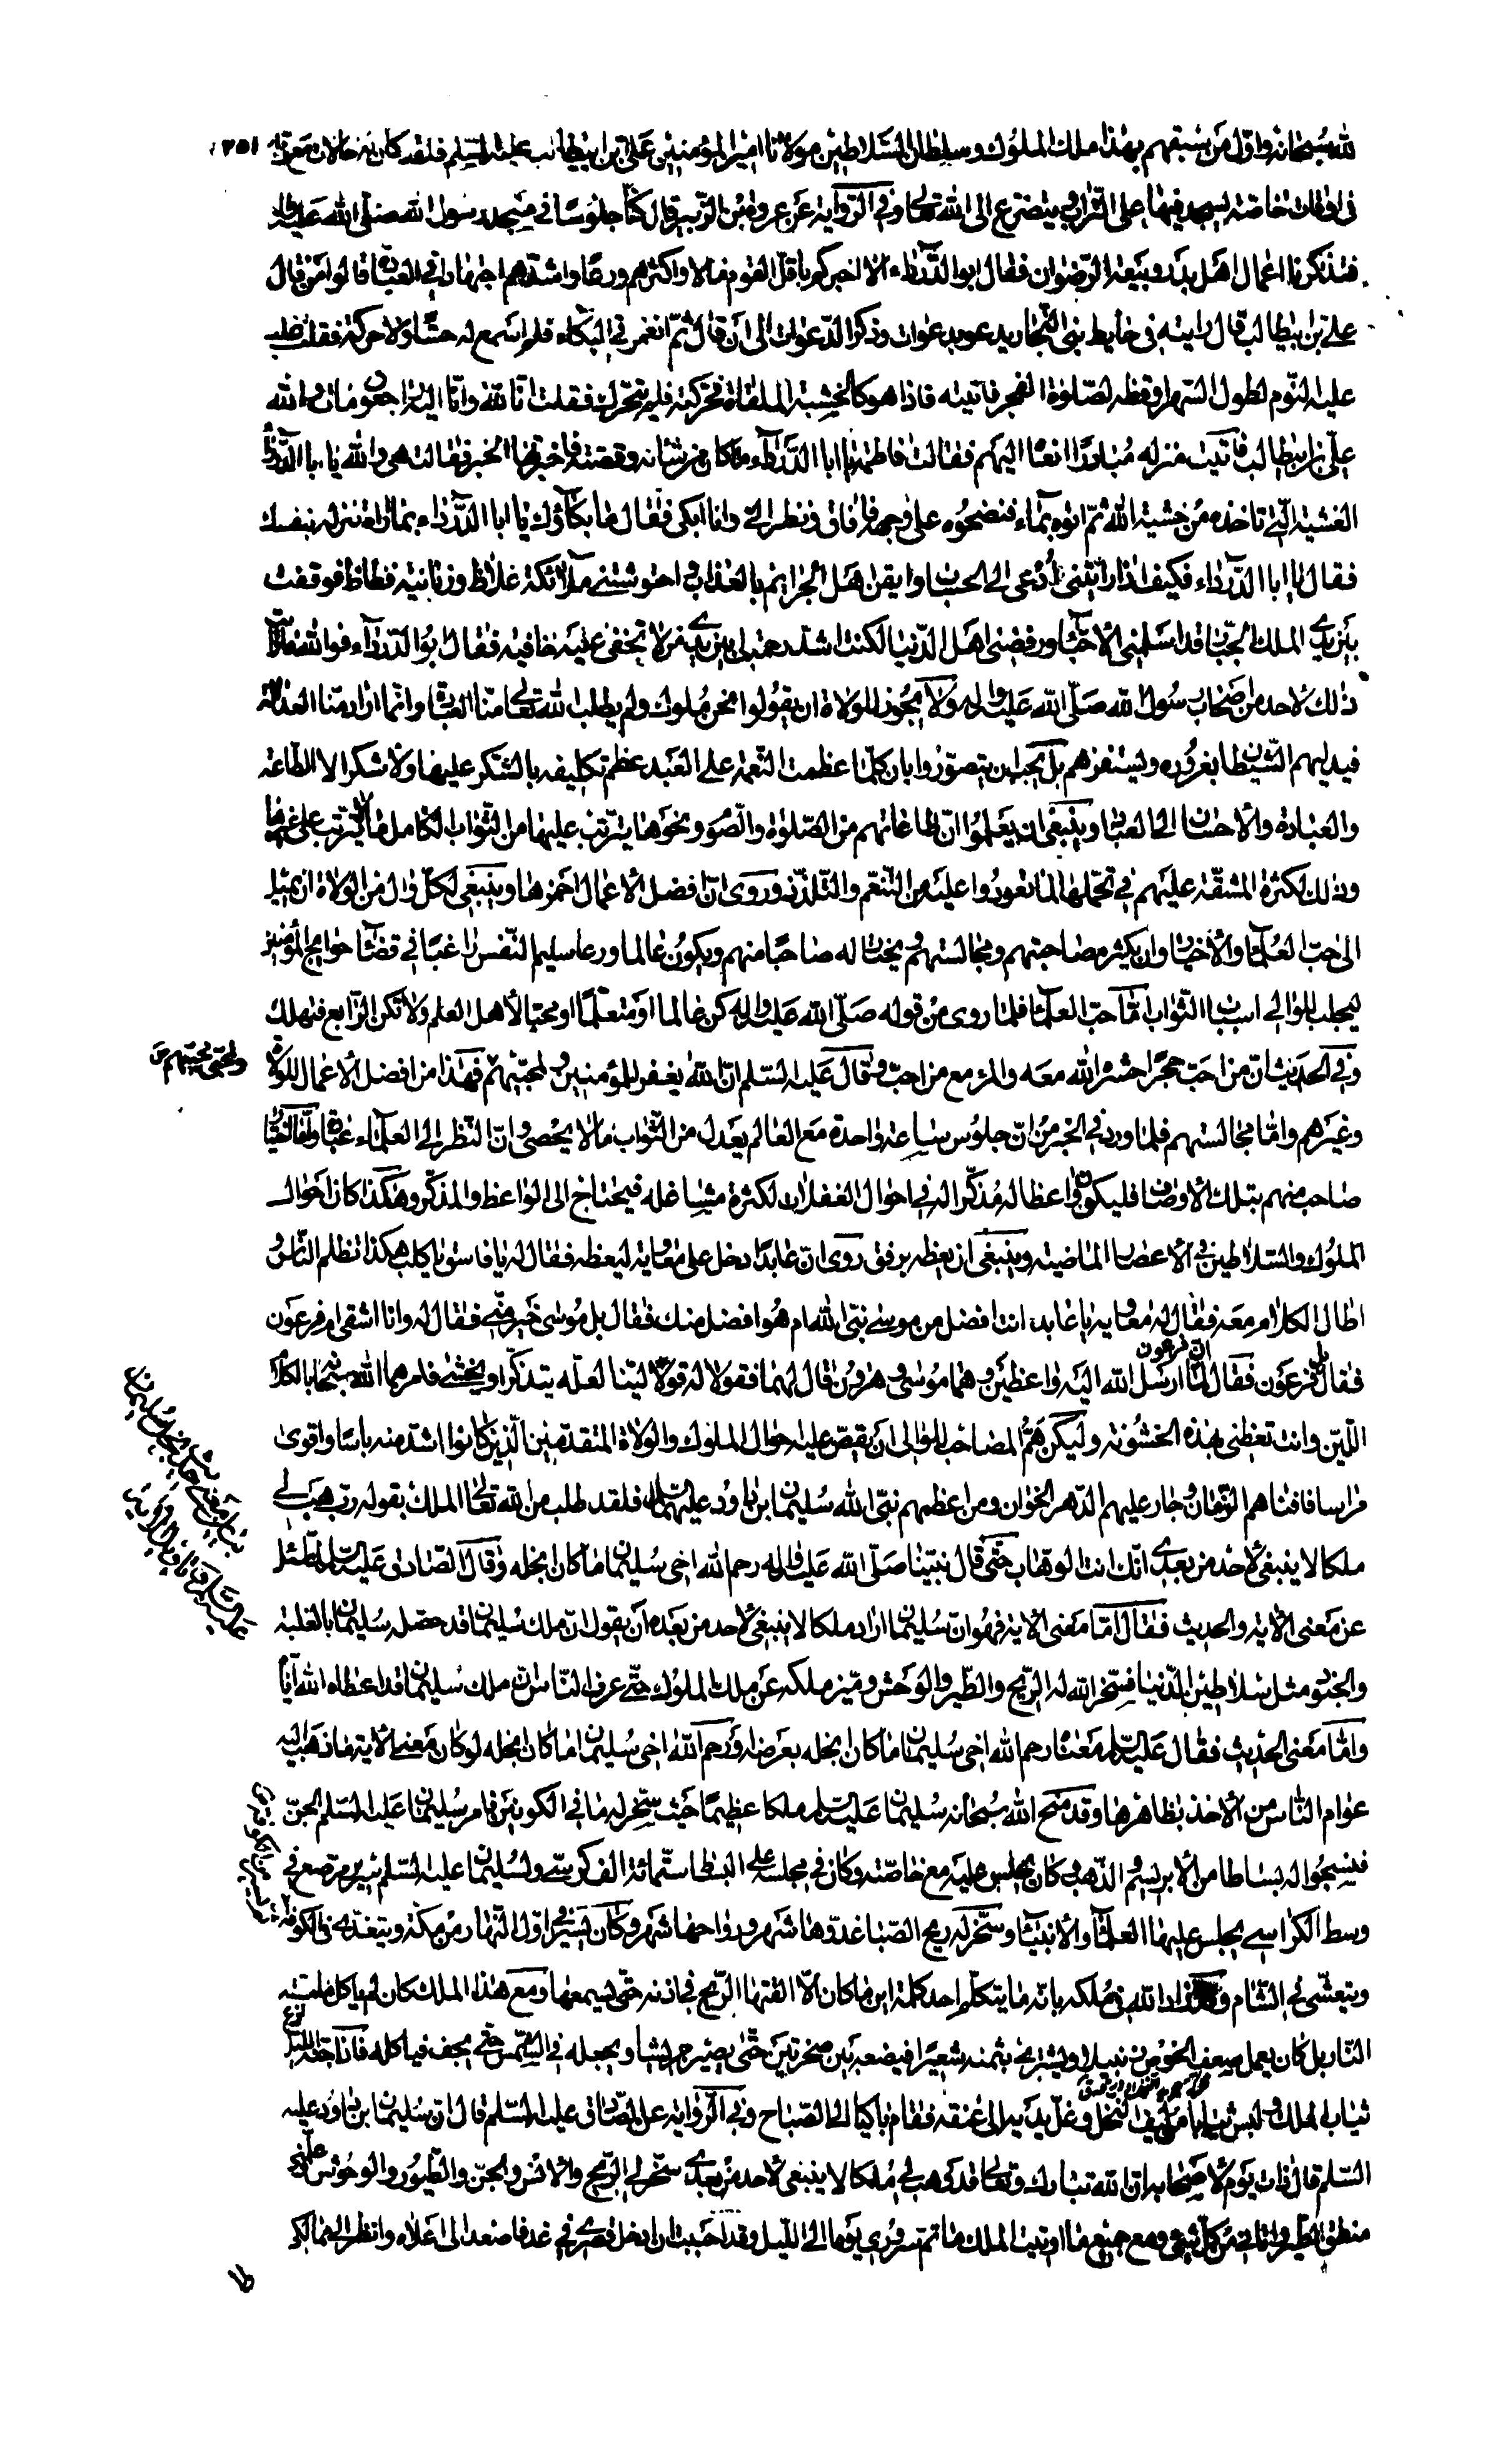 لله سبحانه واول من سبقهم بهذا ملك الملوك وسلطان السلاطين مولانا امير المؤمنين علي بن ابيطالب عليه السلم فلقد كان له حالات مع ربه ٢٥١
في اوقات خاصة يسجد فيها على التراب ويتضرع الى الله تعالى وفي الرواية عن عروة بن الزبير قال كنا جلوسا في مسجد رسول الله صلى الله عليه واله
فتذكرنا اعمال اهل بدر وبيعة الرضوان فقال ابو الدرداء الا اخبركم باقل القوم مالا واكثرهم ورعا واشدهم اجتهادا في العبادة قالوا من قال
علي بن ابيطالب قال رايته في حايط بني النجار يدعو بدعوات وذكر الدعوات الى ان قال ثم انغمر في البكاء فلم اسمع له حسا ولا حركة فقلت غلب
عليه النوم لطول السهر اوقظه لصلوة الفجر فاتيته فاذا هو كالخشبة الملقاة فحركته فلم يتحرك فقلت انا لله وانا اليه راجعون مات والله
علي بن ابيطالب فاتيت منزله مبادرا انعاه اليهم فقالت فاطمة يا ابا الدرداء ما كان من شانه وقصته فاخبرتها الخبر فقالت هي والله يا ابا الدرداء
الغشية التي تاخذه من خشية الله ثم اتوه بماء فنضحوه على وجهه فافاق ونظر الي وانا ابكي فقال ما بكاؤك يا ابا الدرداء بما اراه تنزله بنفسك
فقال يا ابا الدرداء فكيف اذا رايتني ادعى الى الحساب وايقن اهل الجرايم بالعذاب واحتوشتني ملائكة غلاظ وزبانية فظاظ فوقفت
بين يدي الملك الجبار قد اسلمني الاحباء ورفضني اهل الدنيا لكنت اشد رحمة لي بين يدي من لا تخفى عليه خافية فقال ابو الدرداء فوالله ما رايت
ذلك لاحد من اصحاب رسول الله صلى الله عليه واله ولا يجوز للولاة ان يقولوا نحن ملوك ولم يطلب الله تعالى منا العبادة وانما اراد منا العدالة
فيدليهم الشيطان بغروره ويستفزهم بل يجب ان يتصوروا بان كلما عظمت النعمة على العبد عظم تكليفه بالشكر عليها ولا شكر الا الطاعة
والعبادة والاحسان الى العباد وينبغي ان يعلموا ان طاعاتهم من الصلوة والصوم ونحوها يترتب عليها من الثواب الكامل ما لا يترتب على غيرها
وذلك لكثرة المشقة عليهم في تحملها لما تعودوا عليه من التنعم والتلذذ وروى ان افضل الاعمال احمزها وينبغي لكل وال من الولاة ان يميل
الى حب العلماء والاخيار وان يكثر مصاحبتهم ومجالستهم ويختار له صاحبا منهم ويكون عالما ورعا سليم النفس راغبا في قضاء حوايج المؤمنين
ليجلب للوالي اسباب الثواب اما حب العلماء فلما روى من قوله صلى الله عليه واله كن عالما او متعلما او محبا لاهل العلم ولا تكن الرابع فتهلك
وفي الحديث ان من احب حجرا حشره الله معه والمرء مع من احب وقال عليه السلم ان الله يغفر للمؤمنين ولمحبيهم فهذا من افضل الاعمال للولاة
ولمحبي محبيهم
وغيرهم واما مجالستهم فلما ورد في الخبر من ان جلوس ساعة واحدة مع العالم يعدل من الثواب ما لا يحصى وان النظر الى العلماء عبادة واما اختيار
صاحب منهم بتلك الاوصاف فليكون واعظا له مذكرا له في احوال الغفلات لكثرة مشاغله فيحتاج الى الواعظ والمذكر وهكذا كان احوال
الملوك والسلاطين في الاعصار الماضية وينبغي ان يعظه برفق روى ان عابدا دخل على معاوية ليعظه فقال له يا فاسق يا كلب هكذا تظلم الناس و
اطال الكلام معه فقال له معاوية يا عابد انت افضل من موسى نبي الله ام هو افضل منك فقال بل موسى خير مني فقال له وانا اشقى ام فرعون
فقال بل فرعون فقال له ان فرعون لما ارسل الله اليه واعظين وهما موسى وهرون قال لهما فقولا له قولا لينا لعله يتذكر او يخشى فامرهما الله سبحانه بالكلام
اللين وانت تعظني بهذه الخشونة وليكن هم المصاحب للوالي ان يقص عليه احوال الملوك والولاة المتقدمين الذين كانوا اشد منه باسا واقوى
مراسا فافناهم الزمان وجار عليهم الدهر الخوان ومن اعظمهم نبي الله سليمان ابن داود عليهما السلم فلقد طلب من الله تعالى الملك بقوله رب هب لي
ملكا لا ينبغي لاحد من بعدي انك انت الوهاب حتى قال نبينا صلى الله عليه واله رحم الله اخي سليمان ما كان ابخله وقال الصادق عليه السلم لما سئل
عن معنى الاية والحديث فقال اما معنى الاية فهو ان سليمان اراد ملكا لا ينبغي لاحد من بعده ان يقول ان ملك سليمان قد حصله سليمان بالغلبة
والجنود مثل سلاطين الدنيا فسخر الله له الريح والطير والوحش وميز ملكه عن ملك الملوك حتى عرف الناس ان ملك سليمان قد اعطاه الله اياه
واما معنى الحديث فقال عليه السلم معناه رحم الله اخي سليمان ما كان ابخله بعرضه ورحم الله اخي سليمان ما كان ابخله لو كان معنى الاية ما ذهب اليه
عوام الناس من الاخذ بظاهرها وقد منح الله سبحانه سليمان عليه السلم ملكا عظيما حيث سخر له ما في الكونين فامر سليمان عليه السلم الجن
فنسجوا له بساطا من الابريسم والذهب وكان يجلس عليه مع خاصته وكان في مجلسه على البساط ستمائة الف كرسي ولسليمان عليه السلم سرير مرصع في
وسط الكراسي يجلس عليها العلماء والانبياء وسخر له ريح الصبا غدوها شهر ورواحها شهر وكان يسير في اول النهار من مكة ويتغدى في الكوفة
ويتعشى في الشام وزاد الله في ملكه بانه ما يتكلم احد كلمة اين ما كان الا القتها الريح في اذنه حتى يسمعها ومع هذا الملك كان لم ياكل ما مسته
النار بل كان يعمل صفيف الخوص زنبيلا ويشتري بثمنه شعيرا فيضعه بين صخرتين حتى يصير جريشا ويجعله في الشمس حتى يجف فياكله فاذا جنه الليل نزع
ثياب الملك ولبس ثيابا من ليف النخل وغل يديه الى عنقه فقام باكيا الى الصباح وفي الرواية عن الصادق عليه السلم قال ان سليمان بن داود عليه
السلم قال ذات يوم لاصحابه ان الله تبارك وتعالى قد وهب لي ملكا لا ينبغي لاحد من بعدي سخر لي الريح والانس والجن والطيور والوحوش وعلمني
منطق الطير واتاني من كل شيء ومع جميع ما اوتيت الملك ما تم سروري يوما الى الليل وقد احببت ان ادخل قصري في غد فاصعد الى اعلاه وانظر الى ممالكي